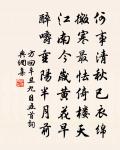 何事清秋已衣綿
寒最怯倚樓天
江南今歲黃花早
醉嚼重陽半月前
方回辛丑九日五首詞
典網集